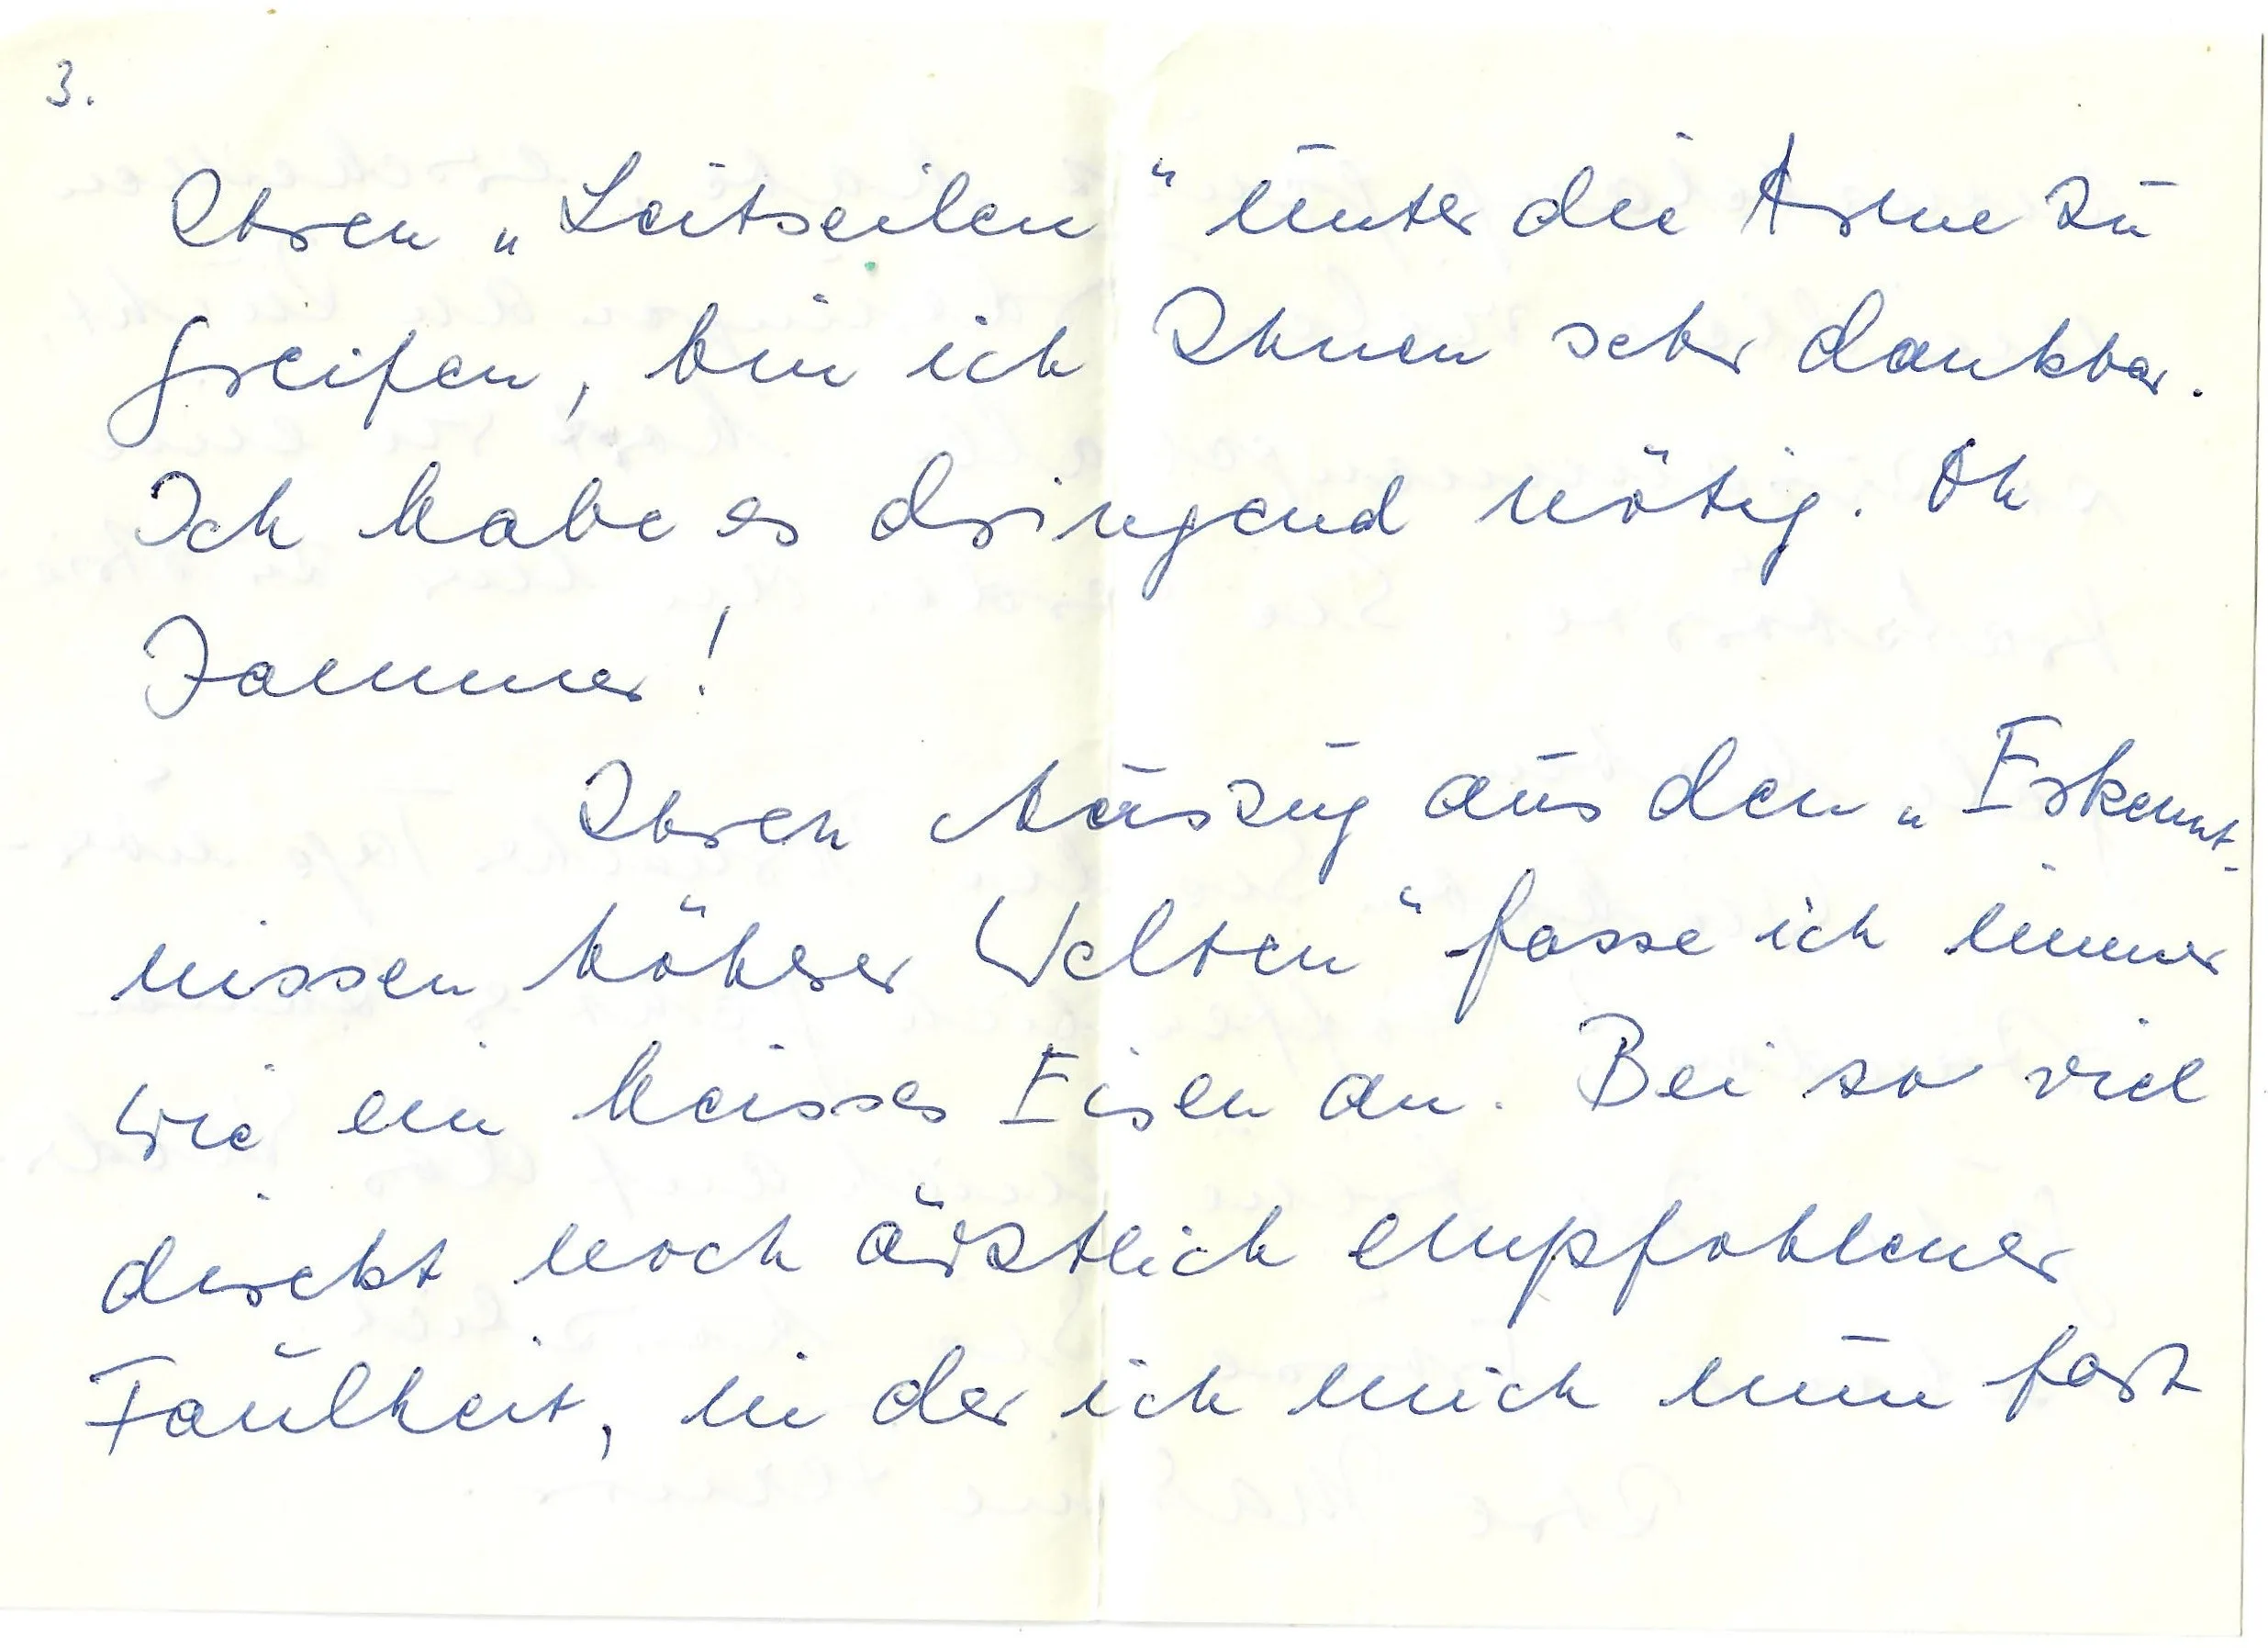 3.
Ihren „Leitseilen“ unter die Arme zu
greifen, bin ich Ihnen sehr dankbar.
Ich habe es dringend nötig. Oh
Jammer!
Ihren Auszug aus den „Erkennt-
nissen höherer Welten“ fasse ich immer
wie ein heisses Eisen an. Bei so viel
direkt noch ärztlich empfohlener
Faulheit, in der ich mich nun fast